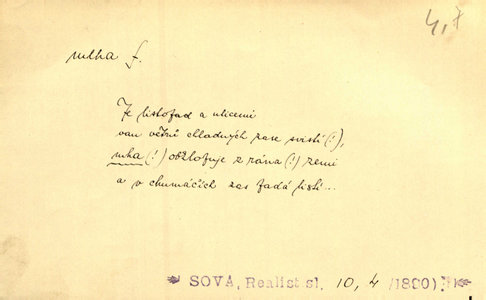 4,7
mlha f.
Je listopad a ulicemi
van větrů chladných zase sviští (!),
mha (!) obklopuje z rána (!) zemi
a v chumáčích zas padá listí...
SOVA, Realist. sl. 10, 4 (1890).